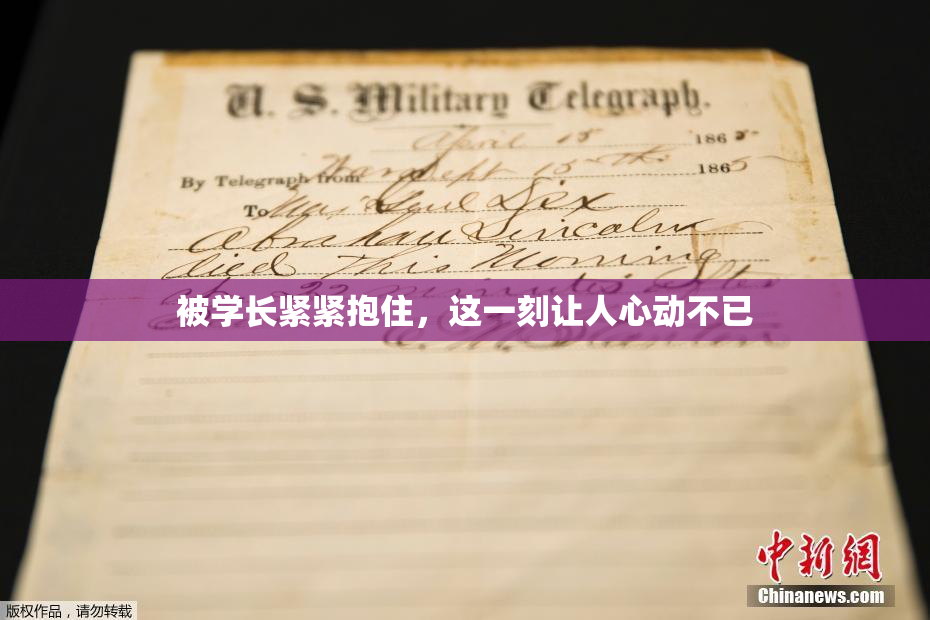 U. S. Military Telegraph.
April 15 1865
By Telegraph from War Dept 15th 1865
To Maj Genl Dix
Abraham Lincoln
died this morning
22 minutes after
被学长紧紧抱住，这一刻让人心动不已
E. M. Stanton
中新网
Chinanews.com
版权作品，请勿转载